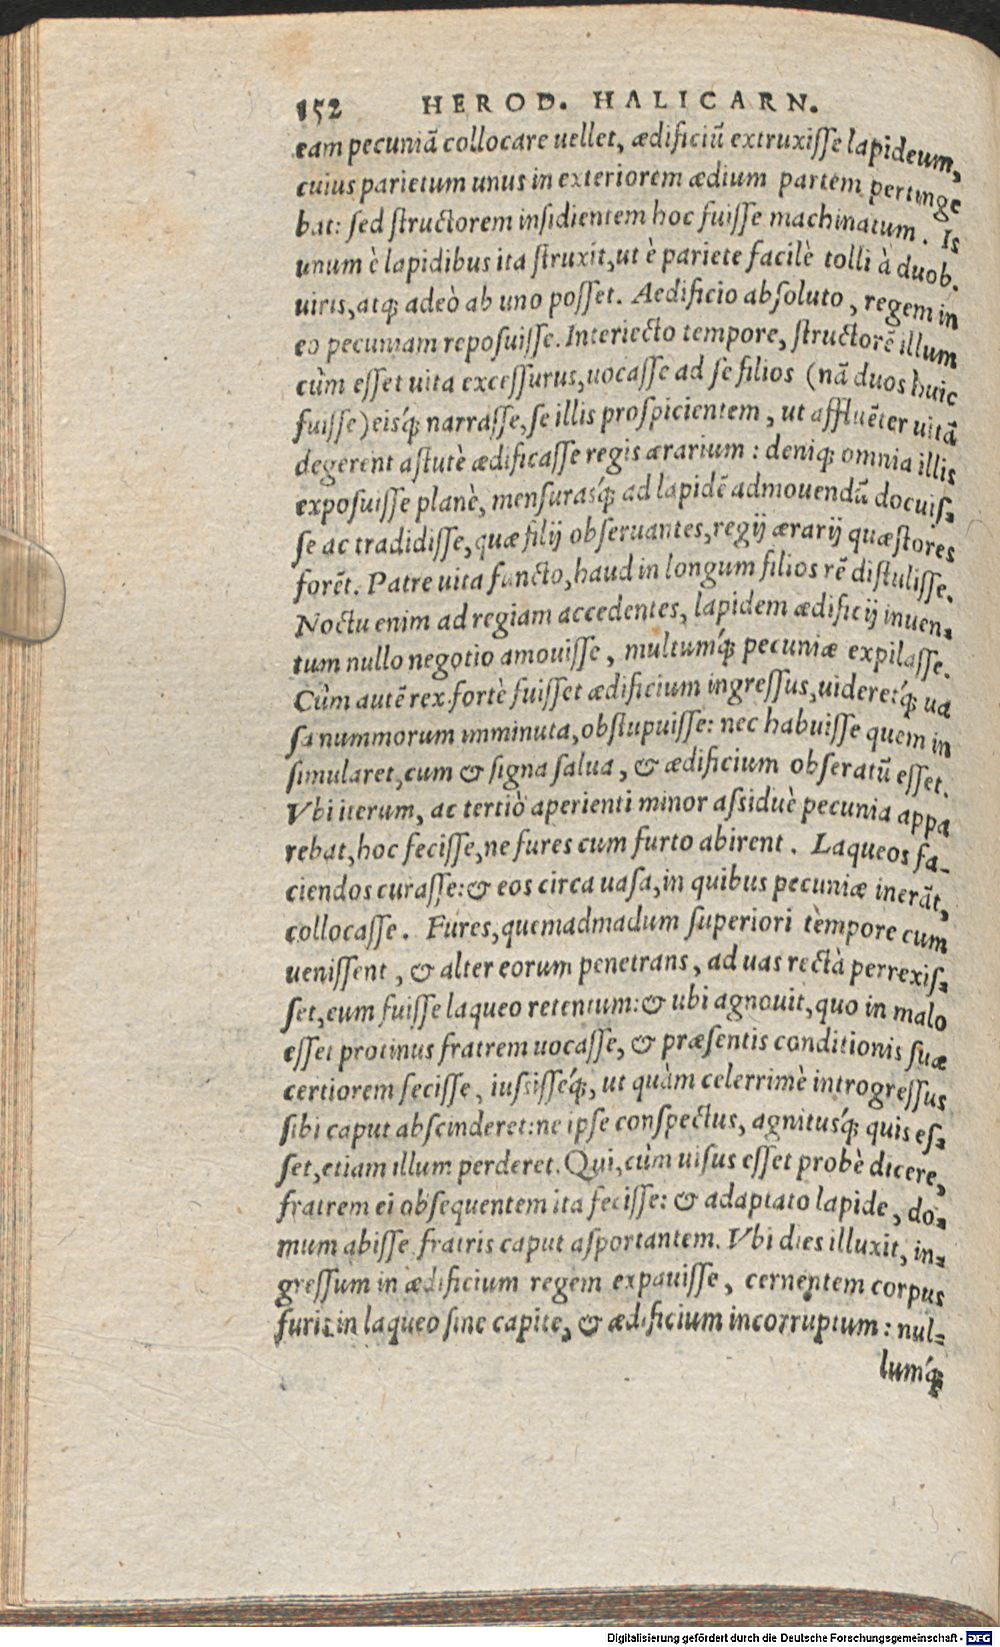 152 HEROD. HALICARN.
eam pecuniā collocare uellet, ædificiū extruxisse lapideum,
cuius parietum unus in exteriorem ædium partem pertinge
bat: sed structorem insidientem hoc fuisse machinatum. Is
unum è lapidibus ita struxit, ut è pariete facilè tolli à duob.
uiris, atq; adeò ab uno posset. Aedificio absoluto, regem in
eo pecuniam reposuisse. Interiecto tempore, structorē illum
cùm esset uita excessurus, uocasse ad se filios (nā duos huic
fuisse) eisq́; narrasse, se illis prospicientem, ut affluēter uitā
degerent astutè ædificasse regis ærarium: deniq; omnia illis
exposuisse planè, mensurasq́; ad lapidē admouendū docuis-
se ac tradidisse, quæ filij obseruantes, regij ærarij quæstores
forēt. Patre uita functo, haud in longum filios rē distulisse.
Noctu enim ad regiam accedentes, lapidem ædificij inuen-
tum nullo negotio amouisse, multumq́; pecuniæ expilasse.
Cùm autē rex fortè fuisset ædificium ingressus, uideretq́; ua
sa nummorum imminuta, obstupuisse: nec habuisse quem in
simularet, cum & signa salua, & ædificium obseratū esset.
Vbi iterum, ac tertiò aperienti minor assiduè pecunia appa
rebat, hoc fecisse, ne fures cum furto abirent. Laqueos fa-
ciendos curasse: & eos circa uasa, in quibus pecuniæ inerāt,
collocasse. Fures, quemadmadum superiori tèmpore cum
uenissent, & alter eorum penetrans, ad uas rectà perrexis-
set, eum fuisse laqueo retentum: & ubi agnouit, quo in malo
esset protinus fratrem uocasse, & præsentis conditionis suæ
certiorem fecisse, iussisseq́;, ut quàm celerrimè introgressus
sibi caput abscinderet: ne ipse conspectus, agnitusq́; quis es-
set, etiam illum perderet. Qui, cùm uisus esset probè dicere,
fratrem ei obsequentem ita fecisse: & adaptato lapide, do-
mum abisse fratris caput asportantem. Vbi dies illuxit, in-
gressum in ædificium regem expauisse, cernentem corpus
furis in laqueo sine capite, & ædificium incorruptum: nul-
lumq́;
Digitalisierung gefördert durch die Deutsche Forschungsgemeinschaft - DFG